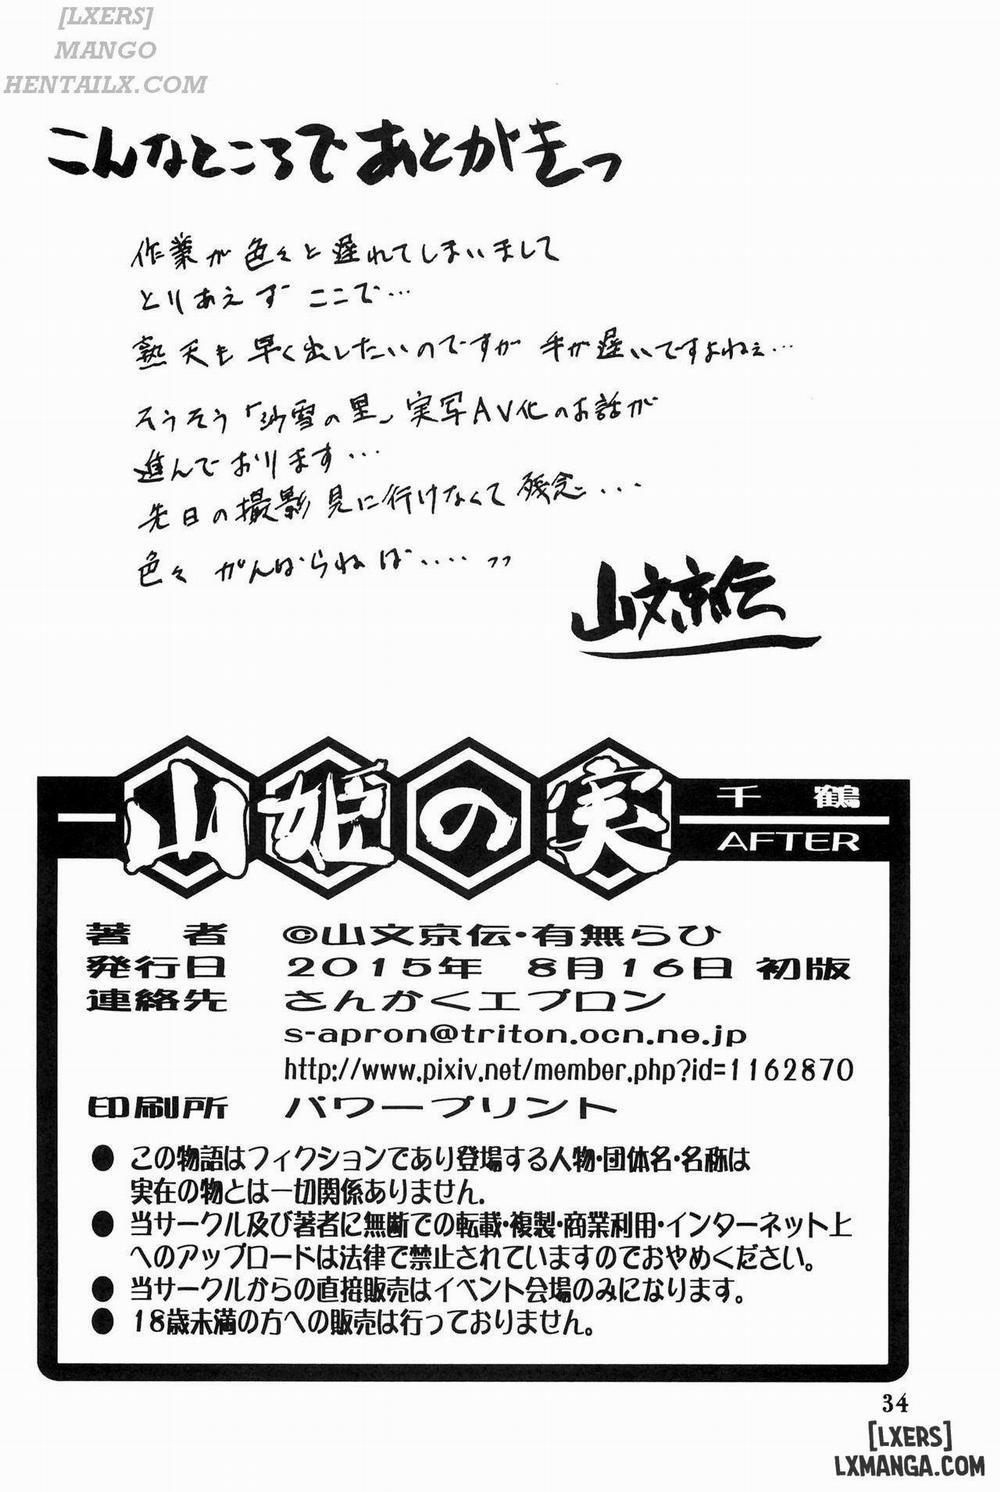 [LXERS]
MANGO
HENTAILX.COM
こんなところであとがきっ
作業が色々と遅れてしまいまして
とりあえずここで…
熟天も早く出したいのですが手が遅いですよねぇ…
そうそう「沙雪の里」実写AV化のお話が
進んでおります…
先日の撮影見に行けなくて残念…
色々がんばらねば…‥っっ
山文京伝
山姫の実
千鶴
AFTER
著者 ©山文京伝・有無らひ
発行日 2015年 8月16日 初版
連絡先 さんかくエプロン
s-apron@triton.ocn.ne.jp
http://www.pixiv.net/member.php?id=1162870
印刷所 パワープリント
● この物語はフィクションであり登場する人物・団体名・名称は
実在の物とは一切関係ありません.
● 当サークル及び著者に無断での転載・複製・商業利用・インターネット上
へのアップロードは法律で禁止されていますのでおやめください。
● 当サークルからの直接販売はイベント会場のみになります。
● 18歳未満の方への販売は行っておりません。
34
[LXERS]
LXMANGA.COM